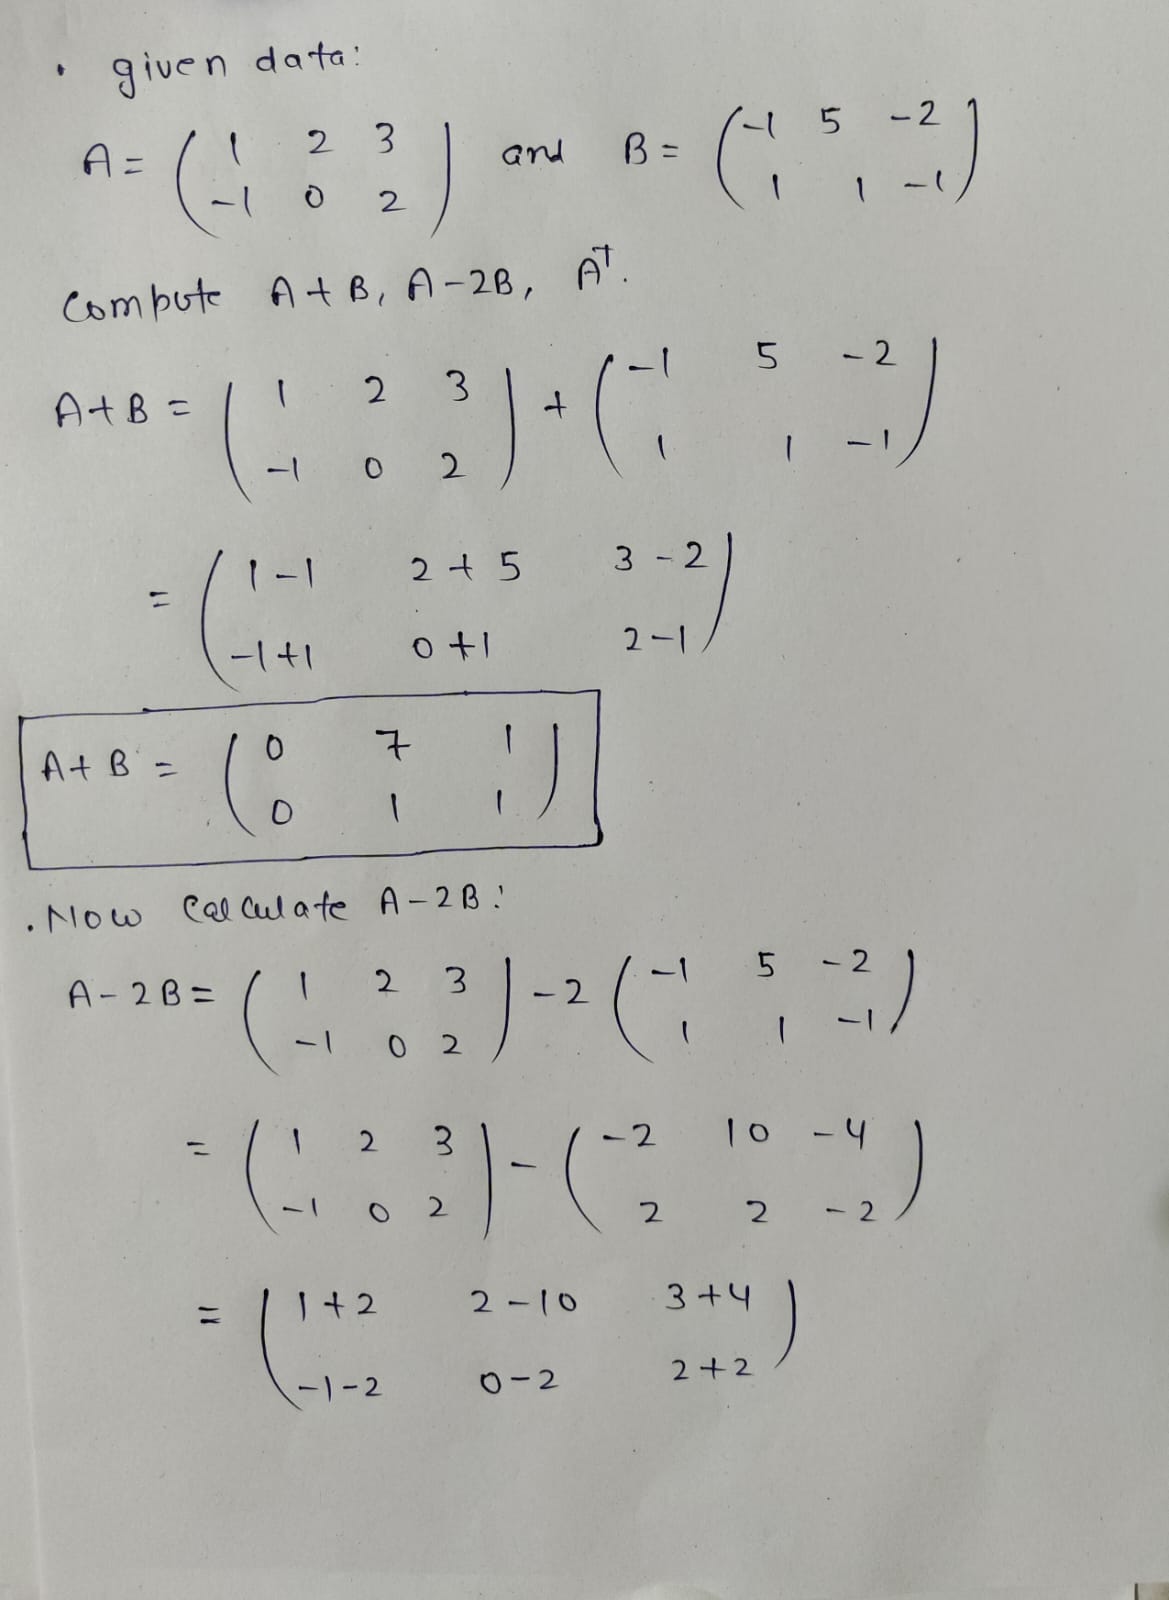 • given data:
A = ( 1 2 3 ) and B = ( -1 5 -2 )
( -1 0 2 ) ( 1 1 -1 )
Compute A + B, A - 2B, Aᵀ.
A + B = ( 1 2 3 ) + ( -1 5 -2 )
( -1 0 2 ) ( 1 1 -1 )
= ( 1-1 2+5 3-2 )
( -1+1 0+1 2-1 )
A + B = ( 0 7 1 )
( 0 1 1 )
. Now Calculate A - 2B :
A - 2B = ( 1 2 3 ) - 2 ( -1 5 -2 )
( -1 0 2 ) ( 1 1 -1 )
= ( 1 2 3 ) - ( -2 10 -4 )
( -1 0 2 ) ( 2 2 -2 )
= ( 1+2 2-10 3+4 )
( -1-2 0-2 2+2 )